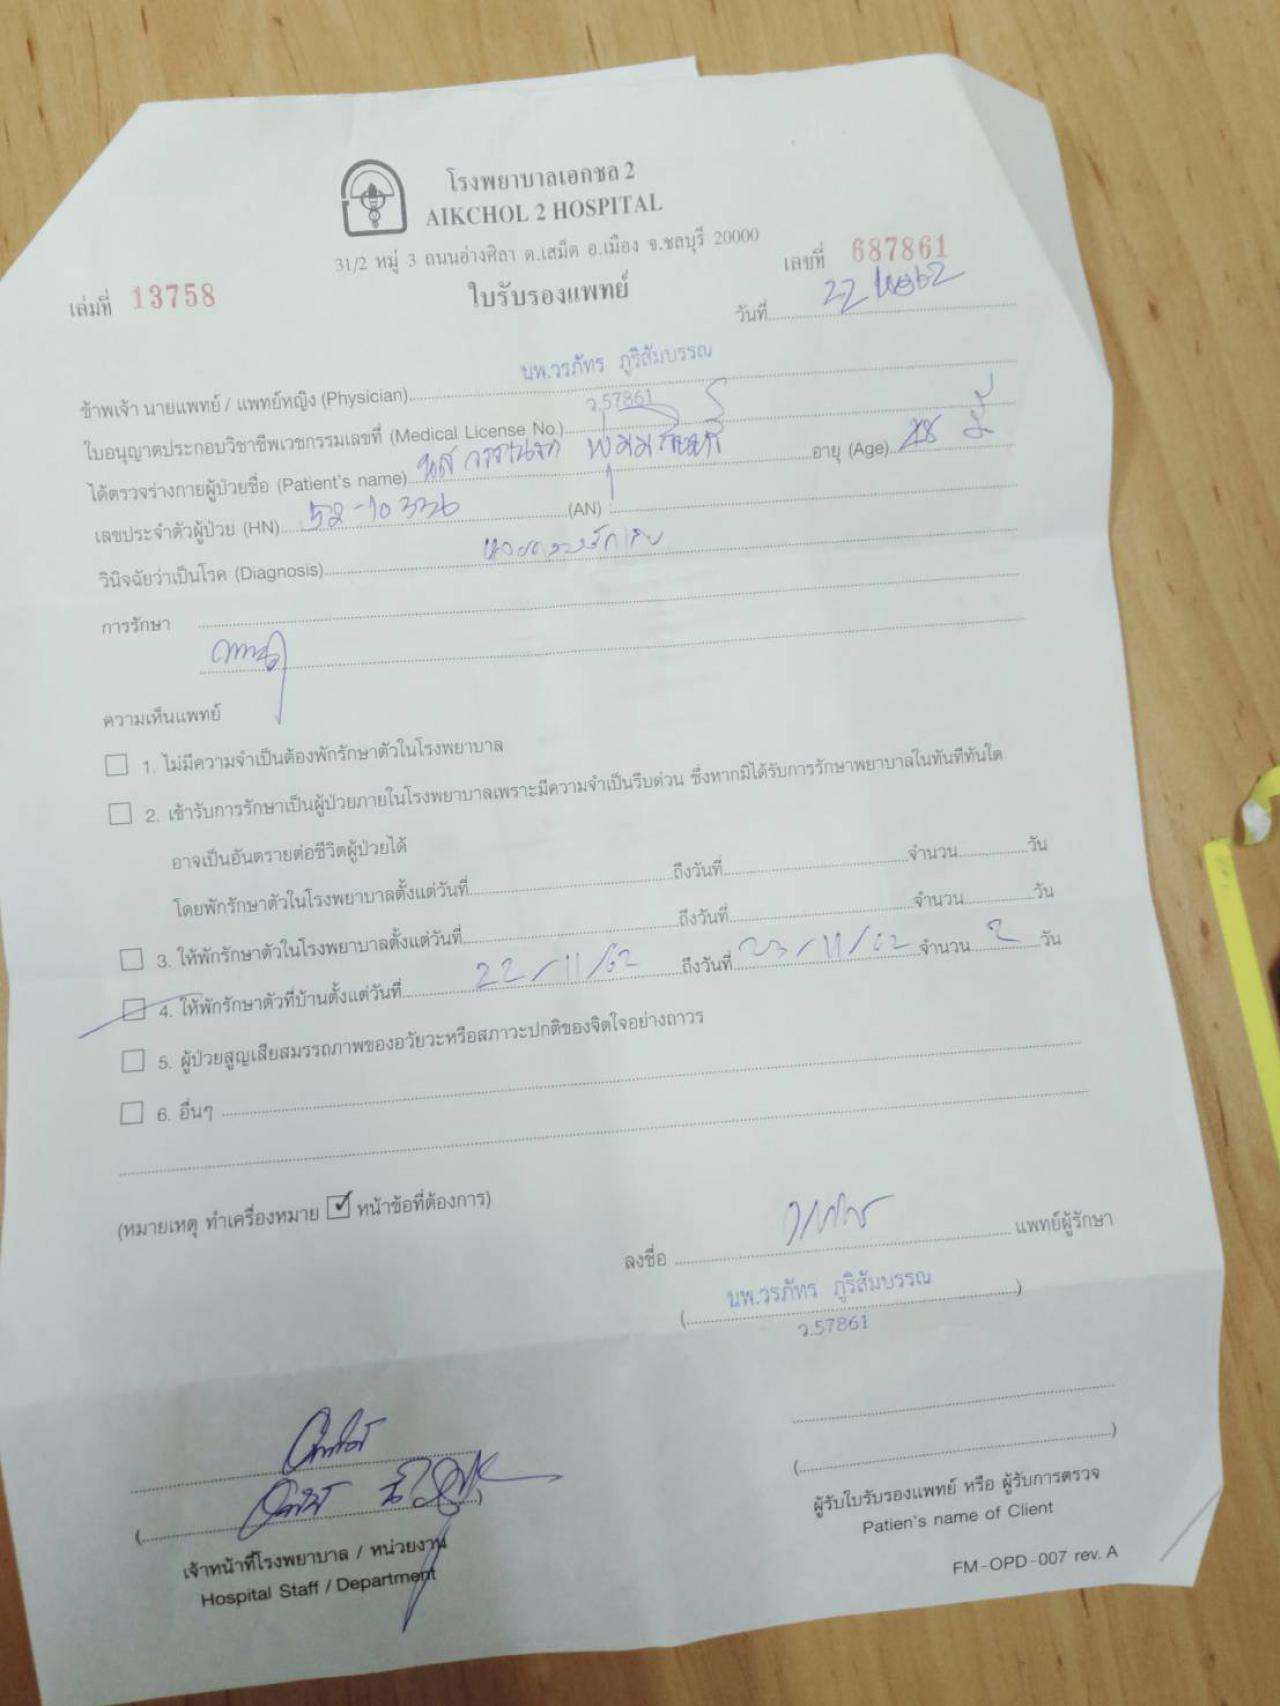 โรงพยาบาลเอกชล 2
AIKCHOL 2 HOSPITAL
31/2 หมู่ 3 ถนนอ่างศิลา ต.เสม็ด อ.เมือง จ.ชลบุรี 20000
เล่มที่ 13758
ใบรับรองแพทย์
เลขที่ 687861
วันที่ 22
ข้าพเจ้า นายแพทย์ / แพทย์หญิง (Physician) นพ.วรภัทร ภูริสัมบรรณ
ใบอนุญาตประกอบวิชาชีพเวชกรรมเลขที่ (Medical License No.) ว.57861
ได้ตรวจร่างกายผู้ป่วยชื่อ (Patient's name) อายุ (Age) ปี
เลขประจำตัวผู้ป่วย (HN) 52-10336 (AN)
วินิจฉัยว่าเป็นโรค (Diagnosis)
การรักษา
ความเห็นแพทย์
1. ไม่มีความจำเป็นต้องพักรักษาตัวในโรงพยาบาล
2. เข้ารับการรักษาเป็นผู้ป่วยภายในโรงพยาบาลเพราะมีความจำเป็นรีบด่วน ซึ่งหากมิได้รับการรักษาพยาบาลในทันทีทันใด
อาจเป็นอันตรายต่อชีวิตผู้ป่วยได้
โดยพักรักษาตัวในโรงพยาบาลตั้งแต่วันที่ ถึงวันที่ จำนวน วัน
3. ให้พักรักษาตัวในโรงพยาบาลตั้งแต่วันที่ ถึงวันที่ จำนวน วัน
4. ให้พักรักษาตัวที่บ้านตั้งแต่วันที่ 22/11/62 ถึงวันที่ 23/11/62 จำนวน 2 วัน
5. ผู้ป่วยสูญเสียสมรรถภาพของอวัยวะหรือสภาวะปกติของจิตใจอย่างถาวร
6. อื่นๆ
(หมายเหตุ ทำเครื่องหมาย ☑ หน้าข้อที่ต้องการ)
ลงชื่อ แพทย์ผู้รักษา
(นพ.วรภัทร ภูริสัมบรรณ)
ว.57861
เจ้าหน้าที่โรงพยาบาล / หน่วยงาน
Hospital Staff / Department
ผู้รับใบรับรองแพทย์ หรือ ผู้รับการตรวจ
Patien's name of Client
FM-OPD-007 rev. A